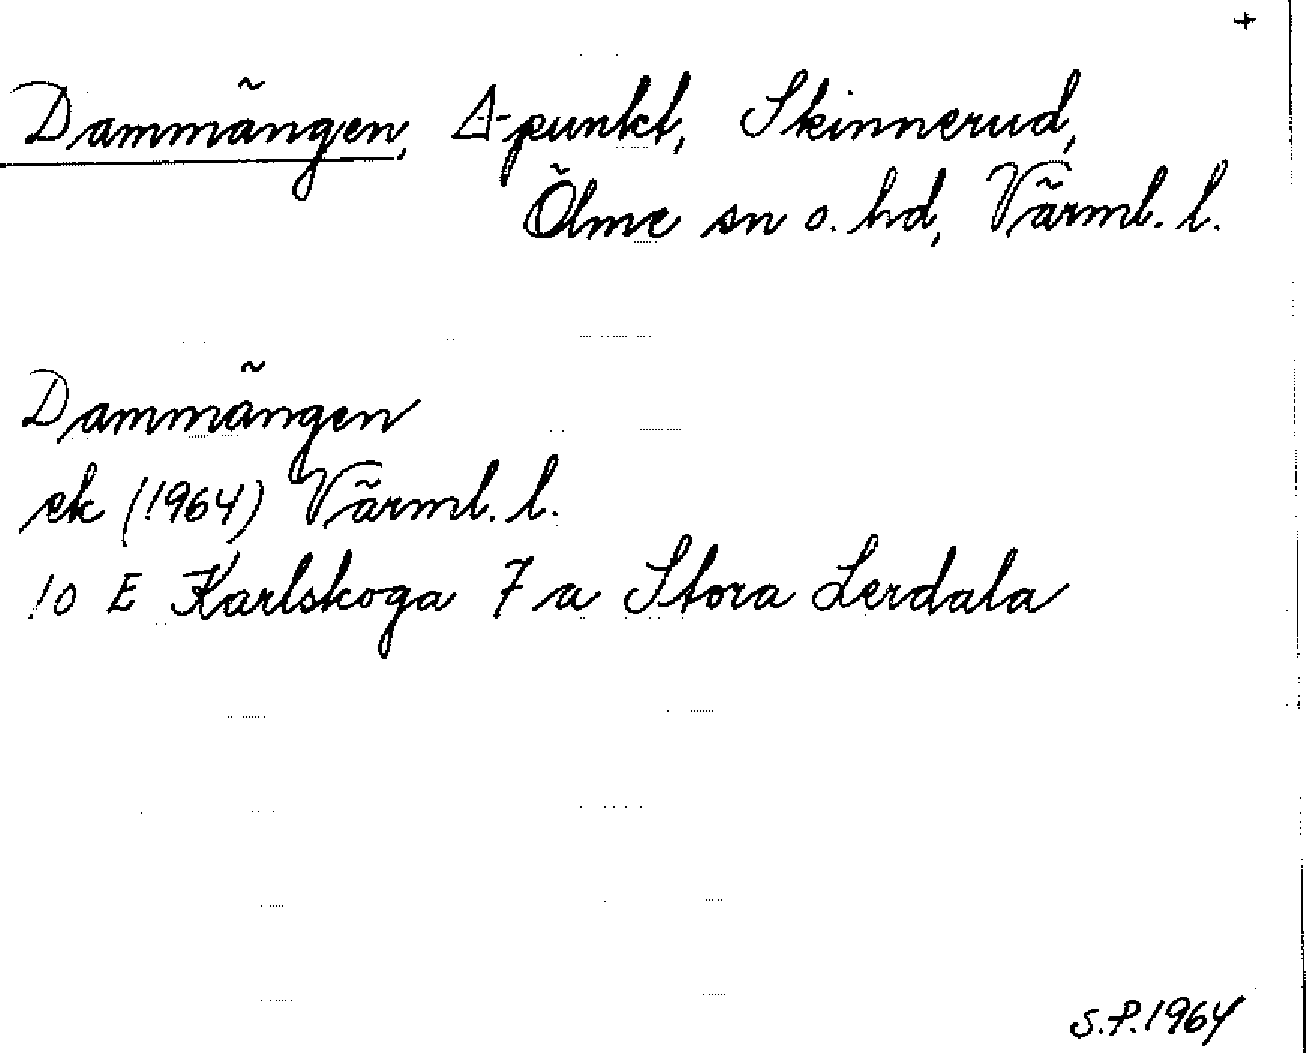 +
Dammängen, Δ-punkt, Skinnerud,
Ölme sn o. hd, Värml. l.
Dammängen
ek (1964) Värml. l.
10 E Karlskoga 7 a Stora Lerdala
S.P. 1964